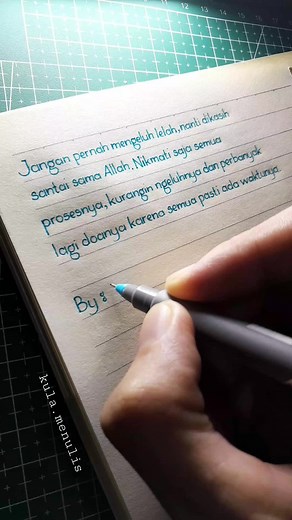 Jangan pernah mengeluh lelah, nanti dikasih
santai sama Allah. Nikmati saja semua
prosesnya, kurangin ngeluhnya dan perbanyak
lagi doanya karena semua pasti ada waktunya.
By :
kula.menulis